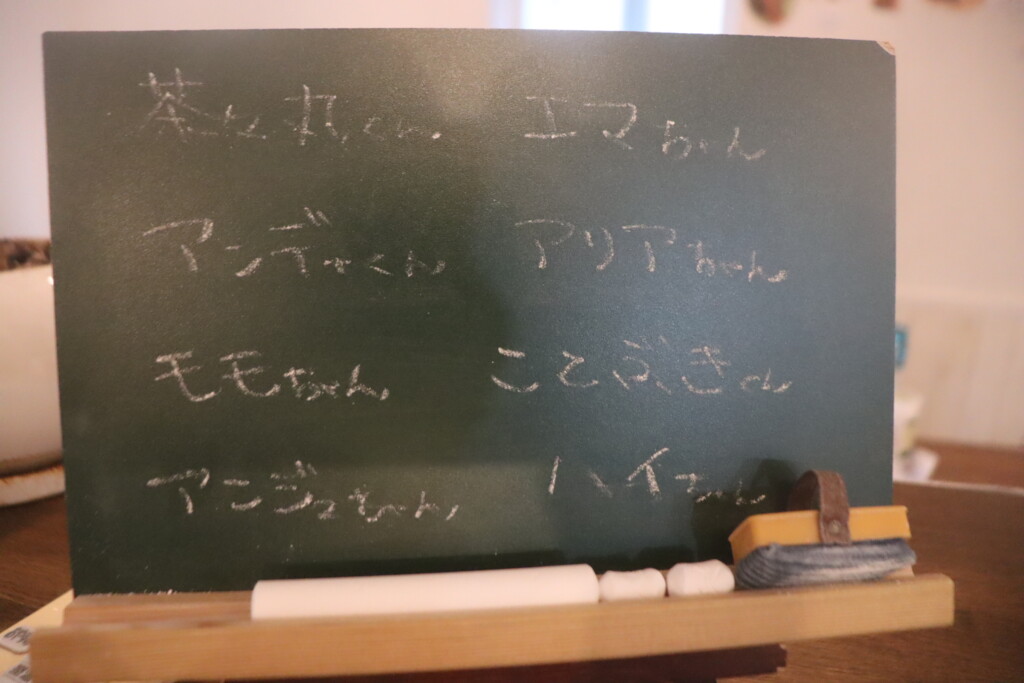 茶々丸くん エマちゃん
アンディくん アリアちゃん
モモちゃん ことぶきくん
アンジュちゃん ハイジちゃん